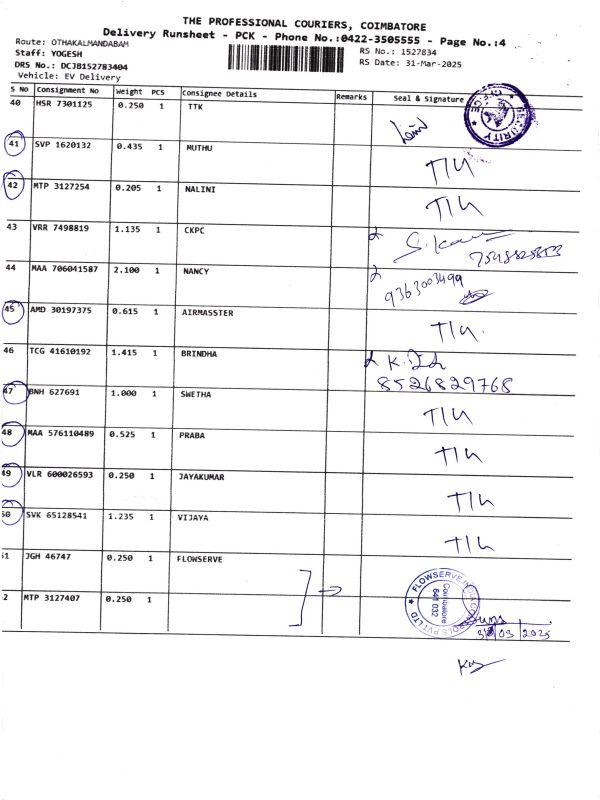 THE PROFESSIONAL COURIERS, COIMBATORE
Delivery Runsheet - PCK - Phone No.:0422-3505555 - Page No.:4
Route: OTHAKALMANDABAM
RS No.: 1527834
Staff: YOGESH
RS Date: 31-Mar-2025
DRS No.: DCJB152783404
Vehicle: EV Delivery
S No Consignment No Weight PCS Consignee Details Remarks Seal & Signature
40 HSR 7301125 0.250 1 TTK SECURITY
41 SVP 1620132 0.435 1 MUTHU T/L4
42 MTP 3127254 0.205 1 NALINI T/L4
43 VRR 7498819 1.135 1 CKPC
44 MAA 706041587 2.100 1 NANCY 9363003499
45 AMD 30197375 0.615 1 AIRMASSTER T/L4.
46 TCG 41610192 1.415 1 BRINDHA
8526829768
47 BNH 627691 1.000 1 SWETHA T/L4
48 MAA 576110489 0.525 1 PRABA T/L4
49 VLR 600026593 0.250 1 JAYAKUMAR T/L4
50 SVK 65128541 1.235 1 VIJAYA T/L4
51 JGH 46747 0.250 1 FLOWSERVE
52 MTP 3127407 0.250 1
FLOWSERVE INDIA CONTROLS PVT LTD
Coimbatore
641 032
31/03/2025